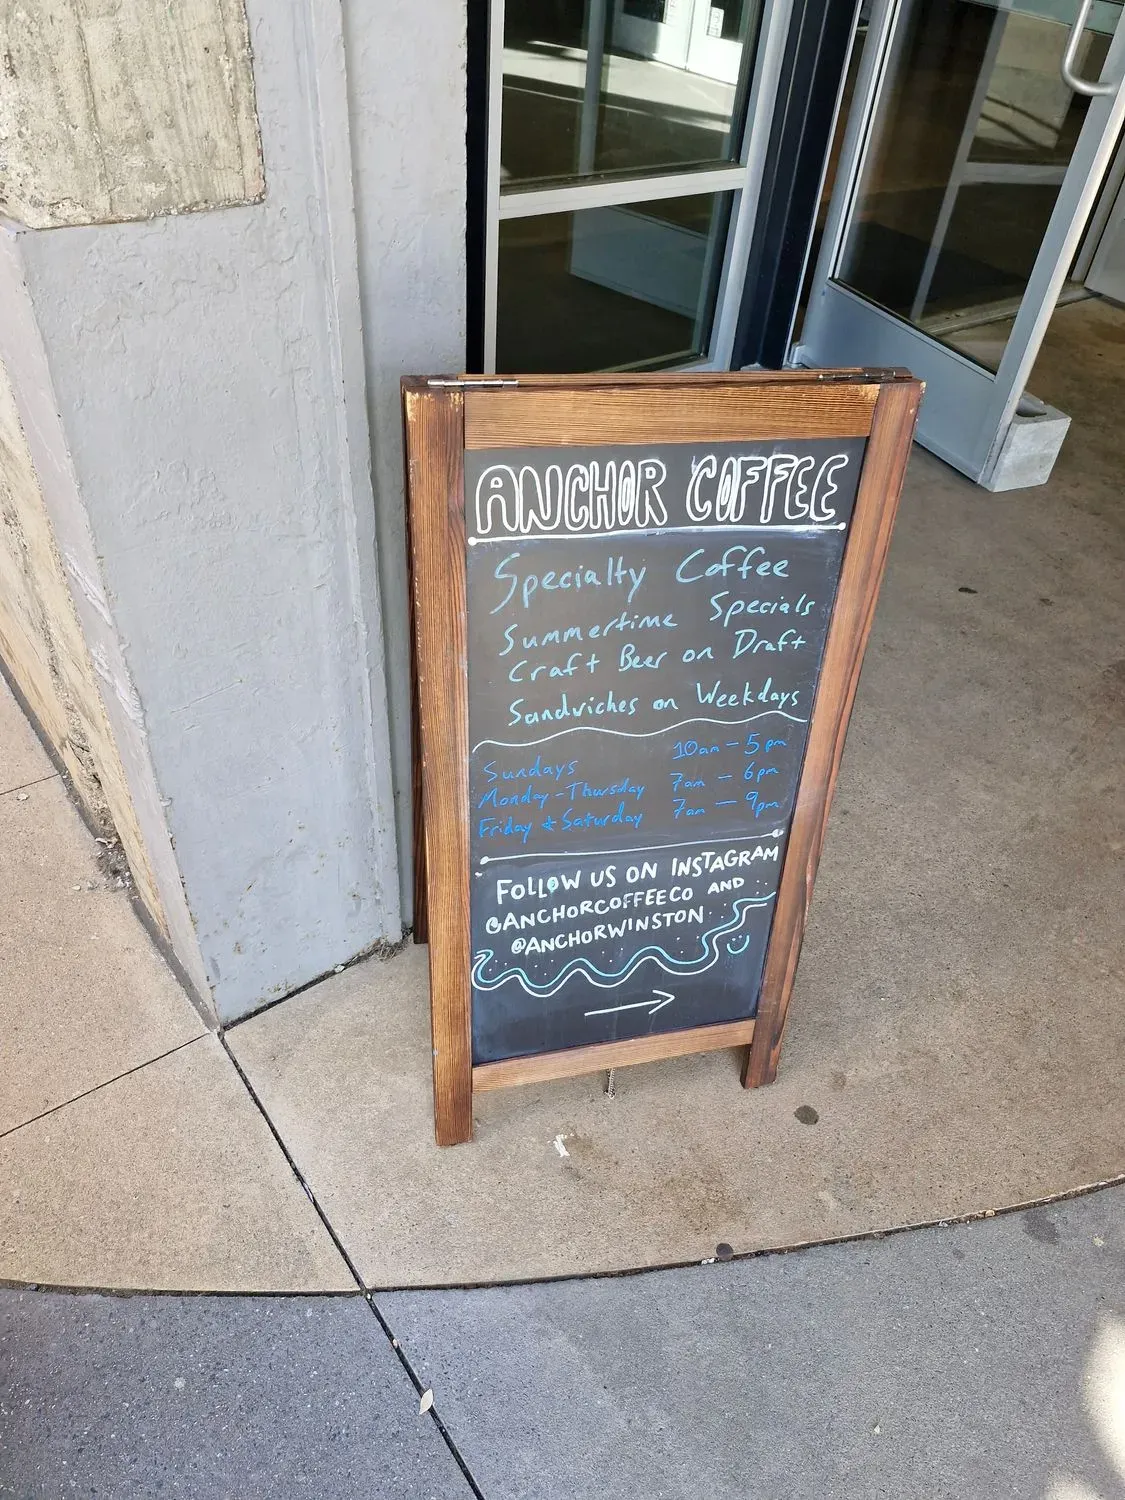 ANCHOR COFFEE
Specialty Coffee
Summertime Specials
Craft Beer on Draft
Sandwiches on Weekdays
Sundays 10am - 5pm
Monday - Thursday 7am - 6pm
Friday + Saturday 7am - 9pm
FOLLOW US ON INSTAGRAM
@ANCHORCOFFEECO AND
@ANCHORWINSTON